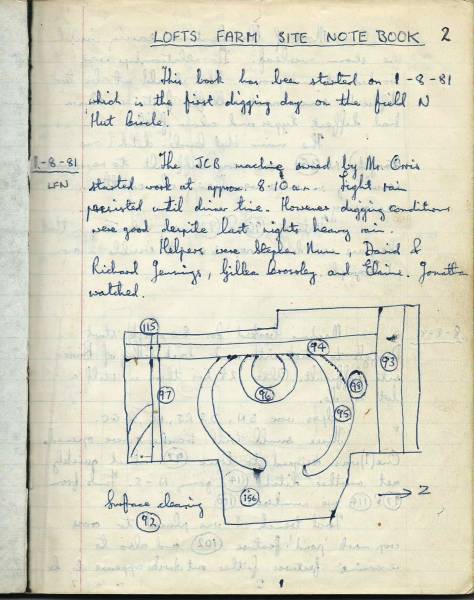 LOFTS FARM SITE NOTE BOOK 2
This book has been started on 1-8-81
which is the first digging day on the field N
Hut Circle.
1-8-81
LFN
The JCB machine owned by Mr Orris
started work at approx 8-10 am. Light rain
persisted until dinner time. However digging conditions
were good despite last nights heavy rain.
Helpers were Stephen Nunn, David &
Richard Jennings, Gillea Brassley and Elaine. Jonathan
watched.
115
94
93
97
96
98
95
156
Surface clearing
92
Z